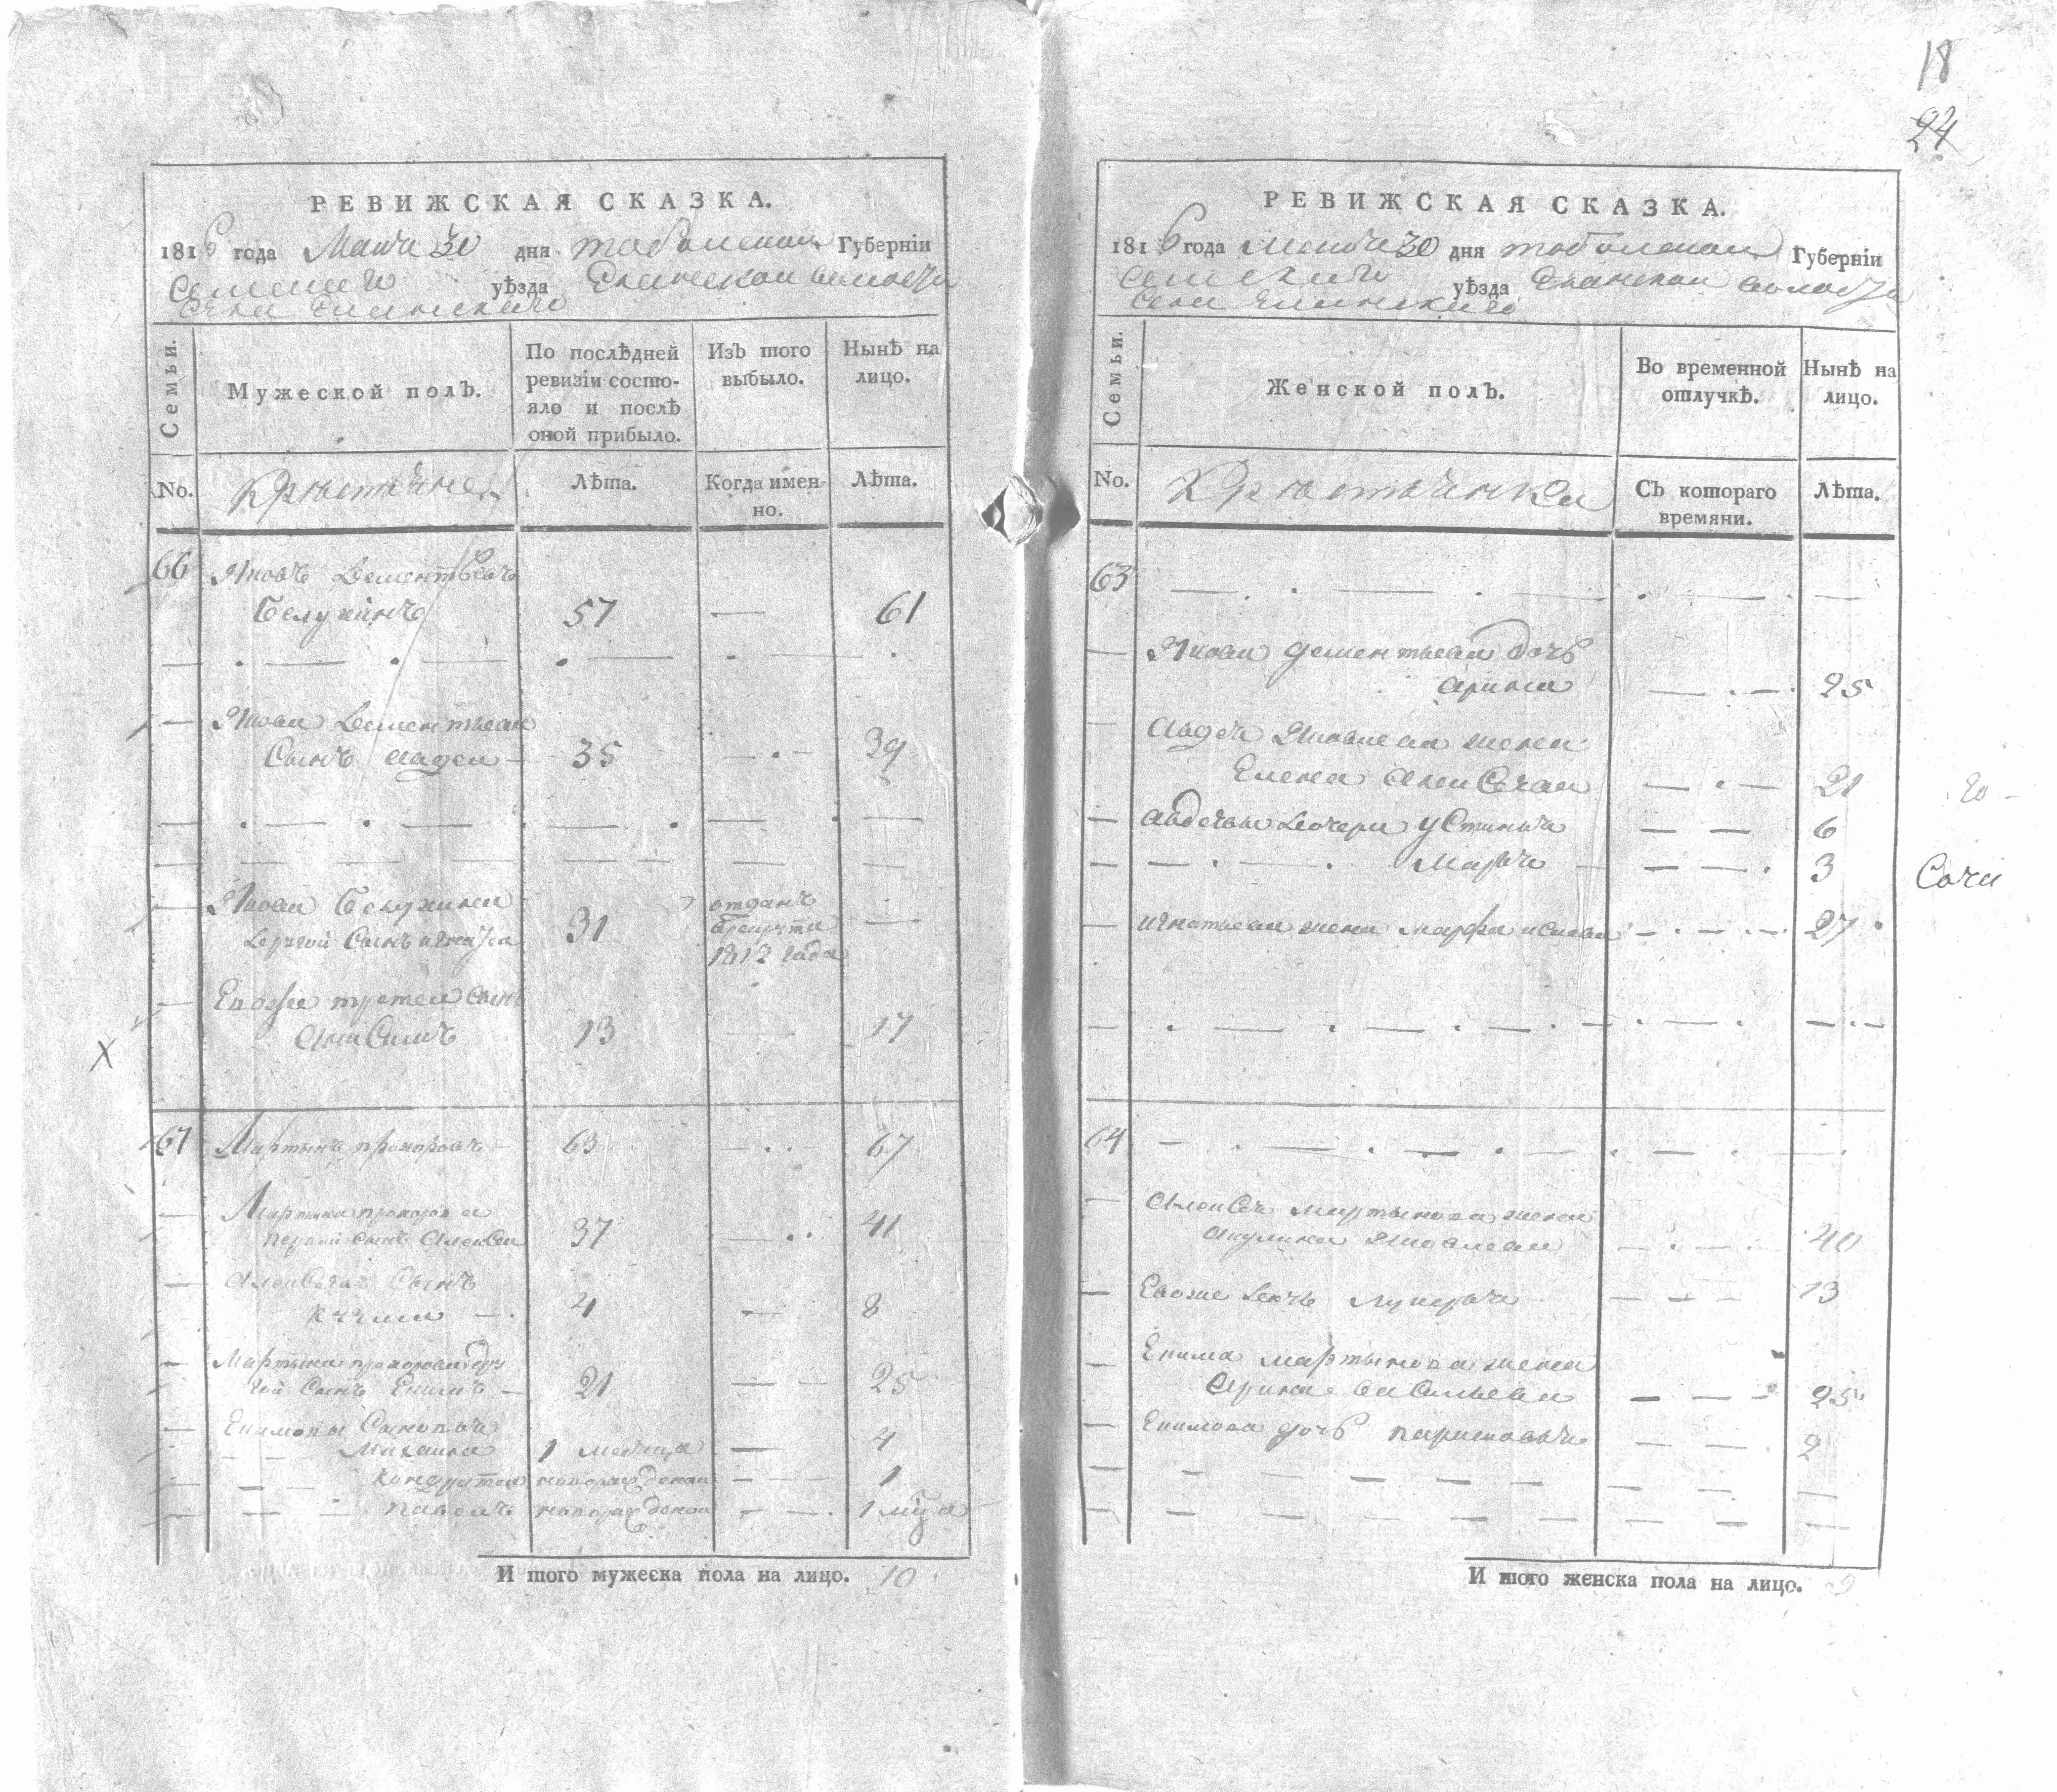 РЕВИЖСКАЯ СКАЗКА.
1816 года Маиа 30 дня тобольской Губернїи
уѣзда
Семьи.
Мужеской полъ.
По послѣдней ревизїи состо-
яло и послѣ оной прибыло.
Изъ того выбыло.
Нынѣ на лицо.
No.
Крестьяне
Лѣта.
Когда имен-
но.
Лѣта.
66 Яковъ Дементьевъ
Белухинъ 57 — 61
Якова Дементьева
Сынъ авдеи 35 39
Якова Белухина
другой Сынъ игнатеи 31 отданъ
врекруты
1812 года
Евоже третей Сынъ
аниСимъ 13 17
67 Мартынъ прохоровъ 63 67
Мартына прохорова
первой сынъ АлекСеи 37 41
АлекСеевъ Сынъ
4 8
Мартына прохорова дру
гой Сынъ Екимъ 21 25
Екимовы Сыновья
Михаила 1 месеца — 4
Кондратеи новорожденои 1
павелъ новорожденои 1 мца
И того мужеска пола на лицо. 10
18
24
РЕВИЖСКАЯ СКАЗКА.
1816 года 30 дня тобольской Губернїи
уѣзда
Семьи.
Женской полъ.
Во временной отлучкѣ.
Нынѣ на лицо.
No.
Крестьянки
Съ котораго времяни.
Лѣта.
63
Якова дементьева дочь
арина 25
Авдея Яковлева жена
Елена алекСеева 21
авдеевы дочери уСтинья 6
Марья 3
игнатьева жена марфа 27
64
АлекСея мартынова жена
акулина Яковлева 40
Евоже дочь лукерья 13
Екима мартынова жена
Арина ваСильева 25
Екимова дочь парасковья 2
И того женска пола на лицо. 9